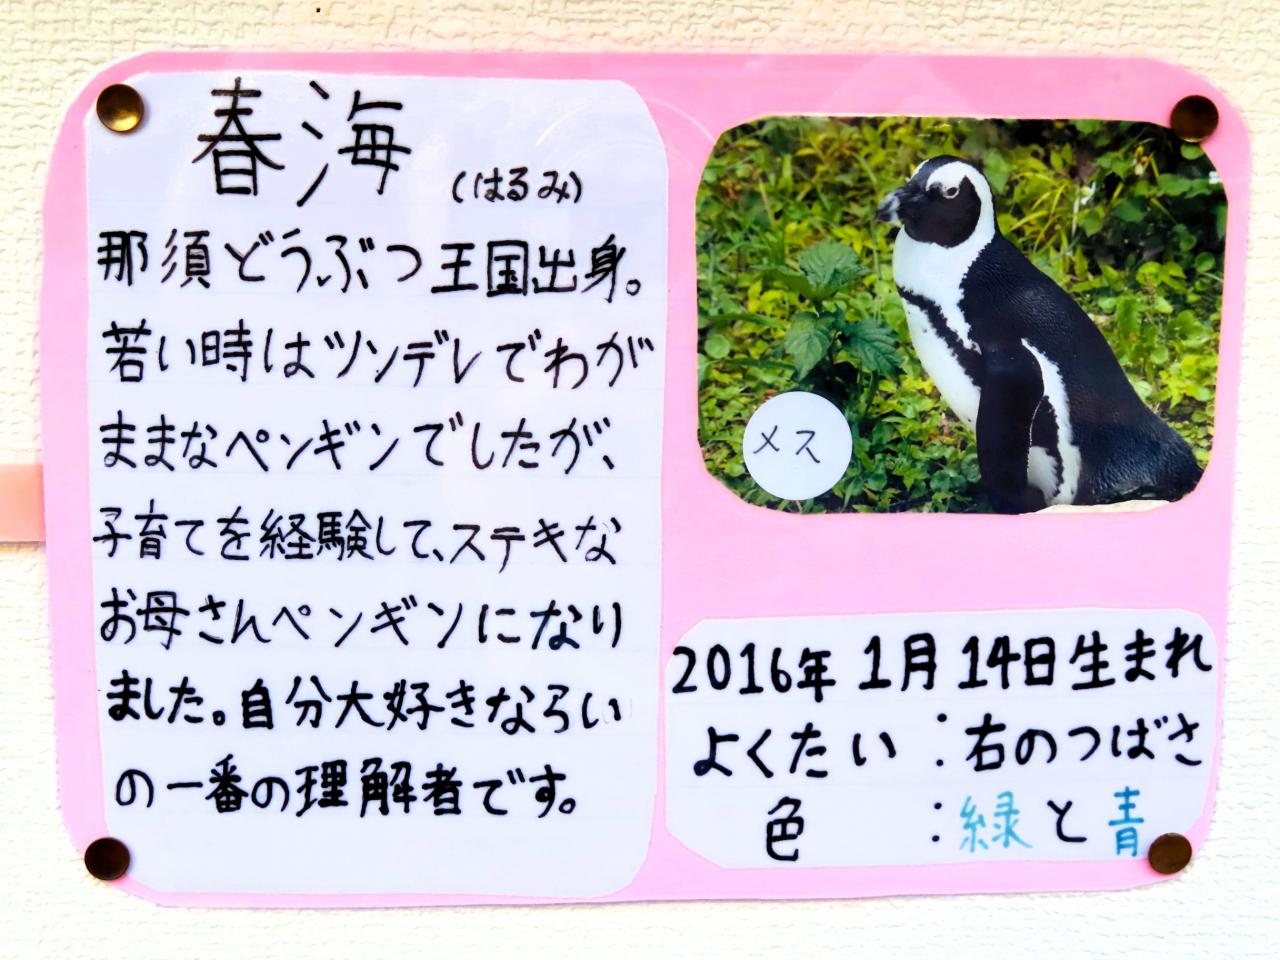 春海
(はるみ)
那須どうぶつ王国出身。
若い時はツンデレでわが
ままなペンギンでしたが、
子育てを経験して、ステキな
お母さんペンギンになり
ました。自分大好きならい
の一番の理解者です。
メス
2016年 1月 14日生まれ
よくたい:右のつばさ
色 :緑と青